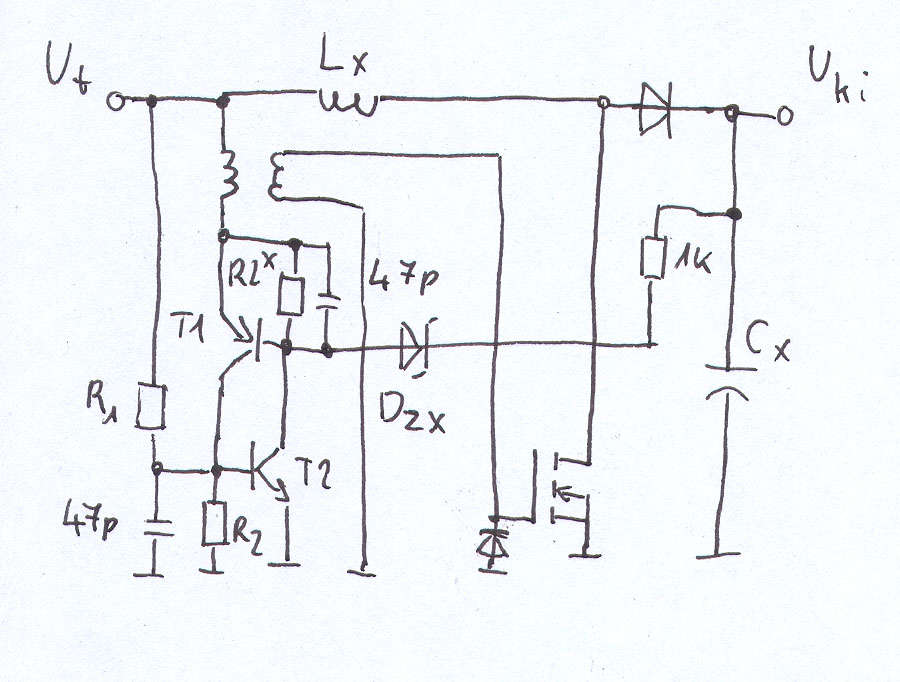 Ut
Lx
Uki
R2x
47p
1k
T1
Cx
R1
Dzx
T2
47p
R2